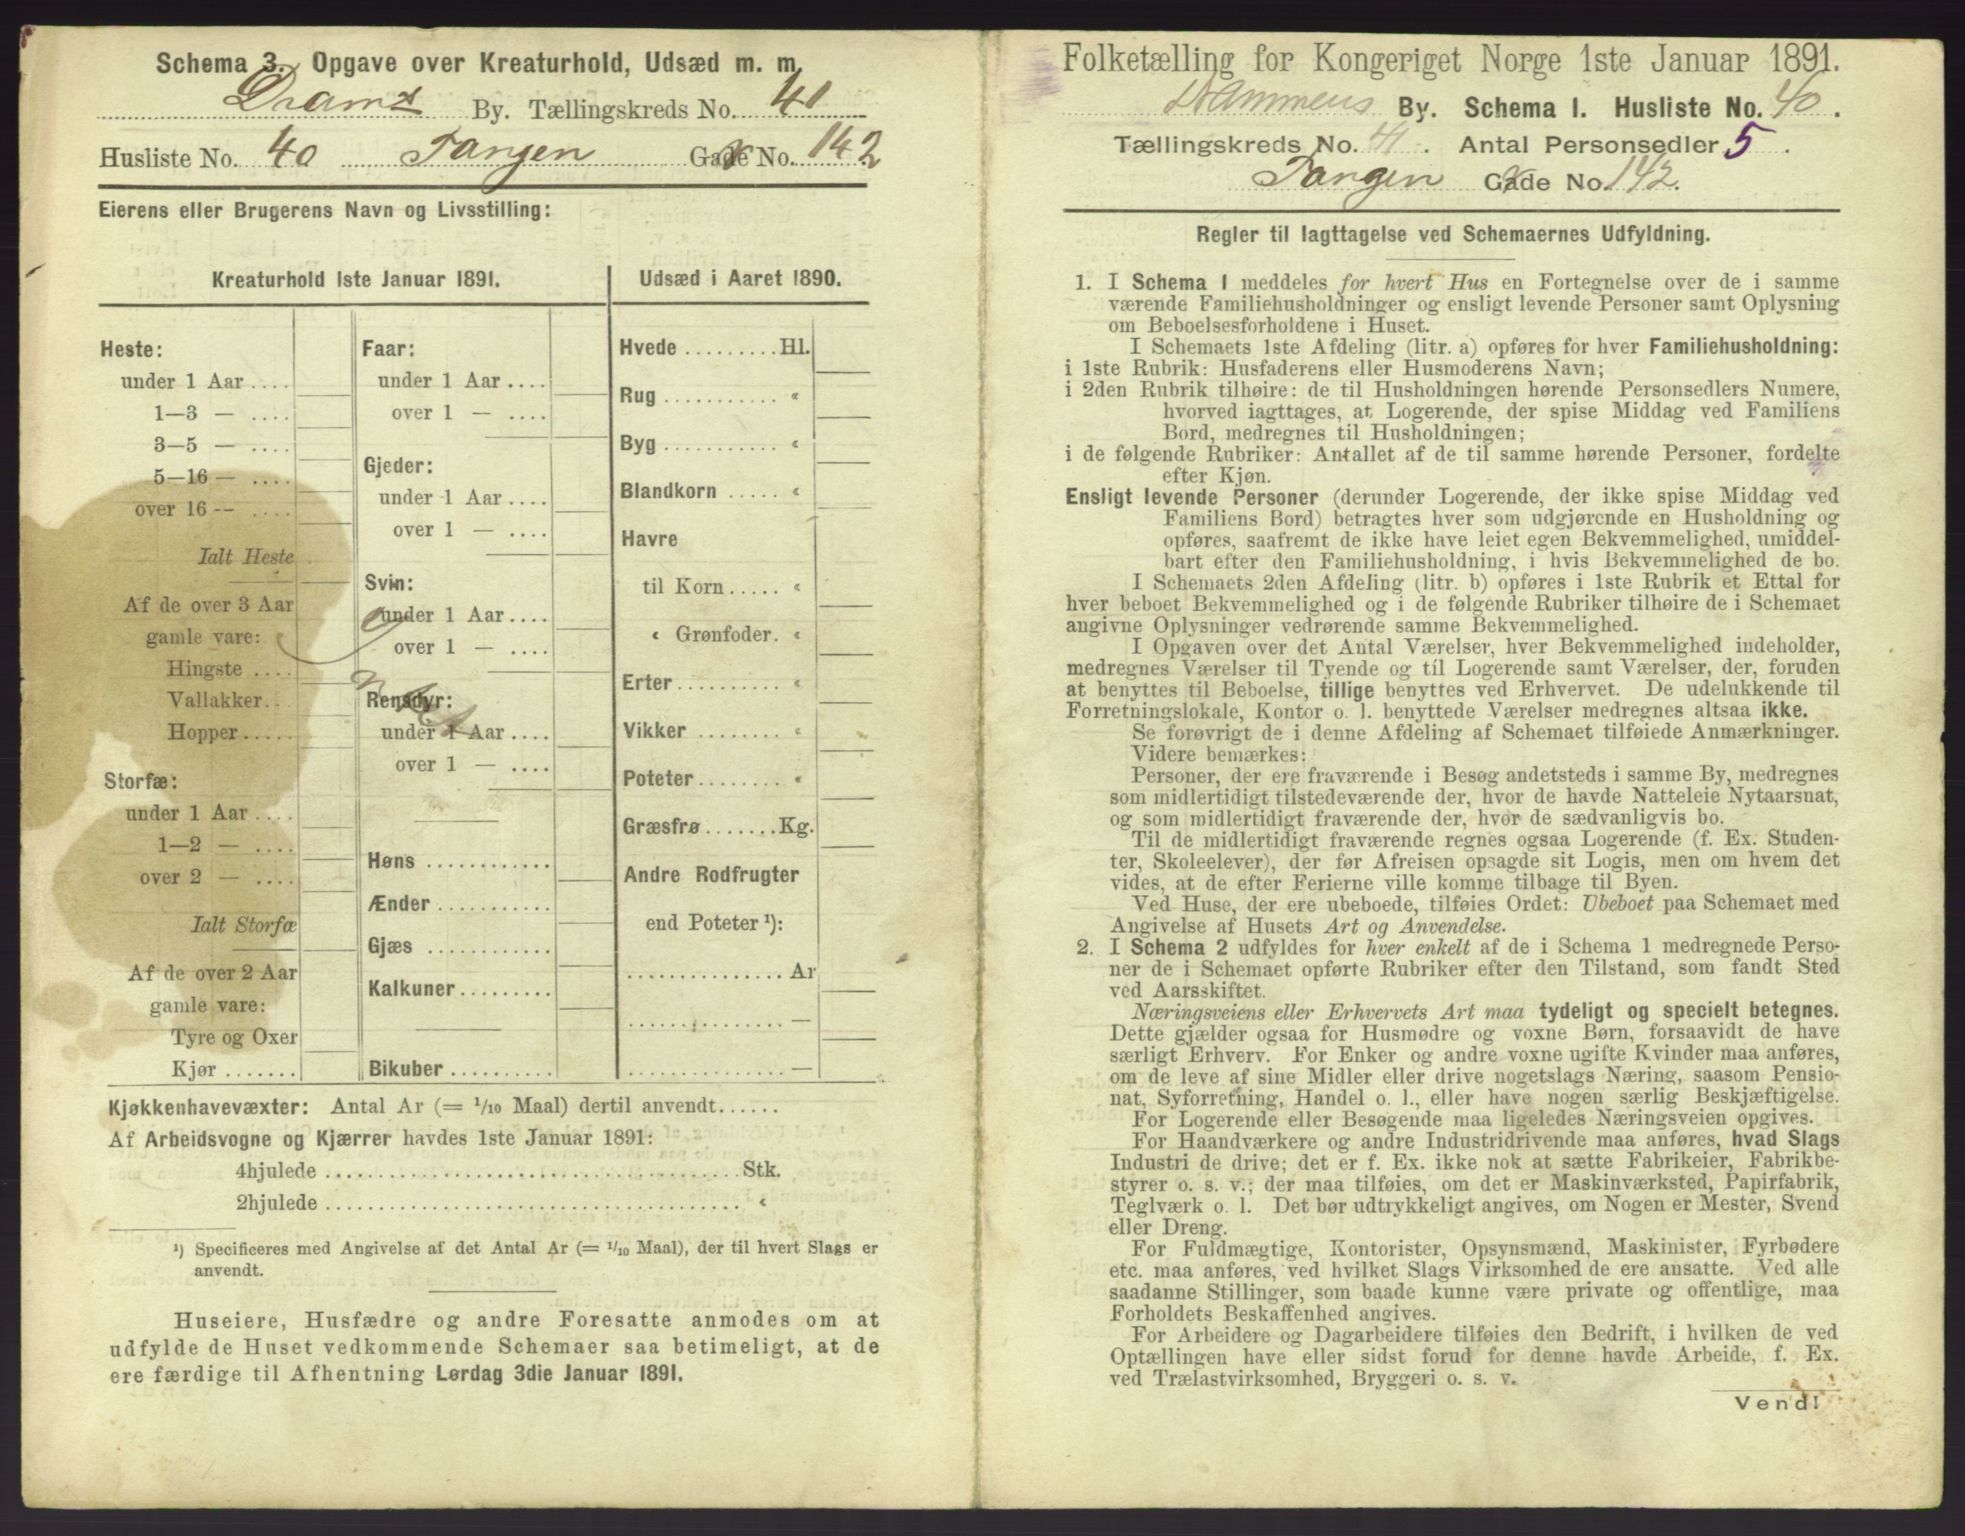 Schema 3. Opgave over Kreaturhold, Udsæd m. m.
Drams By. Tællingskreds No. 41
Husliste No. 40 Tangen Gade No. 142
Eierens eller Brugerens Navn og Livsstilling:
Kreaturhold 1ste Januar 1891.
Heste:
under 1 Aar ....
1—3 — ....
3—5 — ....
5—16 — ....
over 16 — ....
Ialt Heste
Af de over 3 Aar
gamle vare:
Hingste ....
Vallakker...
Hopper.....
Storfæ:
under 1 Aar ....
1—2 — ....
over 2 — ....
Ialt Storfæ
Af de over 2 Aar
gamle vare:
Tyre og Oxer
Kjør .......
Faar:
under 1 Aar ....
over 1 — ....
Gjeder:
under 1 Aar ....
over 1 — ....
Svin:
under 1 Aar ....
over 1 — ....
Rensdyr:
under 1 Aar ....
over 1 — ....
Høns ............
Ænder ...........
Gjæs ............
Kalkuner.........
Bikuber ..........
Udsæd i Aaret 1890.
Hvede .........Hl.
Rug ........... «
Byg ........... «
Blandkorn ..... «
Havre
til Korn..... «
« Grønfoder. «
Erter.......... «
Vikker ........ «
Poteter........ «
Græsfrø.......Kg.
Andre Rodfrugter
end Poteter ¹):
............... Ar
............... —
............... —
Kjøkkenhavevæxter: Antal Ar (= 1/10 Maal) dertil anvendt......
Af Arbeidsvogne og Kjærrer havdes 1ste Januar 1891:
4hjulede ........................................Stk.
2hjulede ........................................ «
¹) Specificeres med Angivelse af det Antal Ar (= 1/10 Maal), der til hvert Slags er
anvendt.
Huseiere, Husfædre og andre Foresatte anmodes om at
udfylde de Huset vedkommende Schemaer saa betimeligt, at de
ere færdige til Afhentning Lørdag 3die Januar 1891.
Folketælling for Kongeriget Norge 1ste Januar 1891.
Drammens By. Schema 1. Husliste No. 40.
Tællingskreds No. 41. Antal Personsedler 5.
Tangen Gade No. 142.
Regler til Iagttagelse ved Schemaernes Udfyldning.
1. I Schema 1 meddeles for hvert Hus en Fortegnelse over de i samme
værende Familiehusholdninger og ensligt levende Personer samt Oplysning
om Beboelsesforholdene i Huset.
I Schemaets 1ste Afdeling (litr. a) opføres for hver Familiehusholdning:
i 1ste Rubrik: Husfaderens eller Husmoderens Navn;
i 2den Rubrik tilhøire: de til Husholdningen hørende Personsedlers Numere,
hvorved iagttages, at Logerende, der spise Middag ved Familiens
Bord, medregnes til Husholdningen;
i de følgende Rubriker: Antallet af de til samme hørende Personer, fordelte
efter Kjøn.
Ensligt levende Personer (derunder Logerende, der ikke spise Middag ved
Familiens Bord) betragtes hver som udgjørende en Husholdning og
opføres, saafremt de ikke have leiet egen Bekvemmelighed, umiddel-
bart efter den Familiehusholdning, i hvis Bekvemmelighed de bo.
I Schemaets 2den Afdeling (litr. b) opføres i 1ste Rubrik et Ettal for
hver beboet Bekvemmelighed og i de følgende Rubriker tilhøire de i Schemaet
angivne Oplysninger vedrørende samme Bekvemmelighed.
I Opgaven over det Antal Værelser, hver Bekvemmelighed indeholder,
medregnes Værelser til Tyende og til Logerende samt Værelser, der, foruden
at benyttes til Beboelse, tillige benyttes ved Erhvervet. De udelukkende til
Forretningslokale, Kontor o. l. benyttede Værelser medregnes altsaa ikke.
Se forøvrigt de i denne Afdeling af Schemaet tilføiede Anmærkninger.
Videre bemærkes:
Personer, der ere fraværende i Besøg andetsteds i samme By, medregnes
som midlertidigt tilstedeværende der, hvor de havde Natteleie Nytaarsnat,
og som midlertidigt fraværende der, hvor de sædvanligvis bo.
Til de midlertidigt fraværende regnes ogsaa Logerende (f. Ex. Studen-
ter, Skoleelever), der før Afreisen opsagde sit Logis, men om hvem det
vides, at de efter Ferierne ville komme tilbage til Byen.
Ved Huse, der ere ubeboede, tilføies Ordet: Ubeboet paa Schemaet med
Angivelse af Husets Art og Anvendelse.
2. I Schema 2 udfyldes for hver enkelt af de i Schema 1 medregnede Perso-
ner de i Schemaet opførte Rubriker efter den Tilstand, som fandt Sted
ved Aarsskiftet.
Næringsveiens eller Erhvervets Art maa tydeligt og specielt betegnes.
Dette gjælder ogsaa for Husmødre og voxne Børn, forsaavidt de have
særligt Erhverv. For Enker og andre voxne ugifte Kvinder maa anføres,
om de leve af sine Midler eller drive nogetslags Næring, saasom Pensio-
nat, Syforretning, Handel o. l., eller have nogen særlig Beskjæftigelse.
For Logerende eller Besøgende maa ligeledes Næringsveien opgives.
For Haandværkere og andre Industridrivende maa anføres, hvad Slags
Industri de drive; det er f. Ex. ikke nok at sætte Fabrikeier, Fabrikbe-
styrer o. s. v.; der maa tilføies, om det er Maskinværksted, Papirfabrik,
Teglværk o. l. Det bør udtrykkeligt angives, om Nogen er Mester, Svend
eller Dreng.
For Fuldmægtige, Kontorister, Opsynsmænd, Maskinister, Fyrbødere
etc. maa anføres, ved hvilket Slags Virksomhed de ere ansatte. Ved alle
saadanne Stillinger, som baade kunne være private og offentlige, maa
Forholdets Beskaffenhed angives.
For Arbeidere og Dagarbeidere tilføies den Bedrift, i hvilken de ved
Optællingen have eller sidst forud for denne havde Arbeide, f. Ex.
ved Trælastvirksomhed, Bryggeri o. s. v.
Vend!